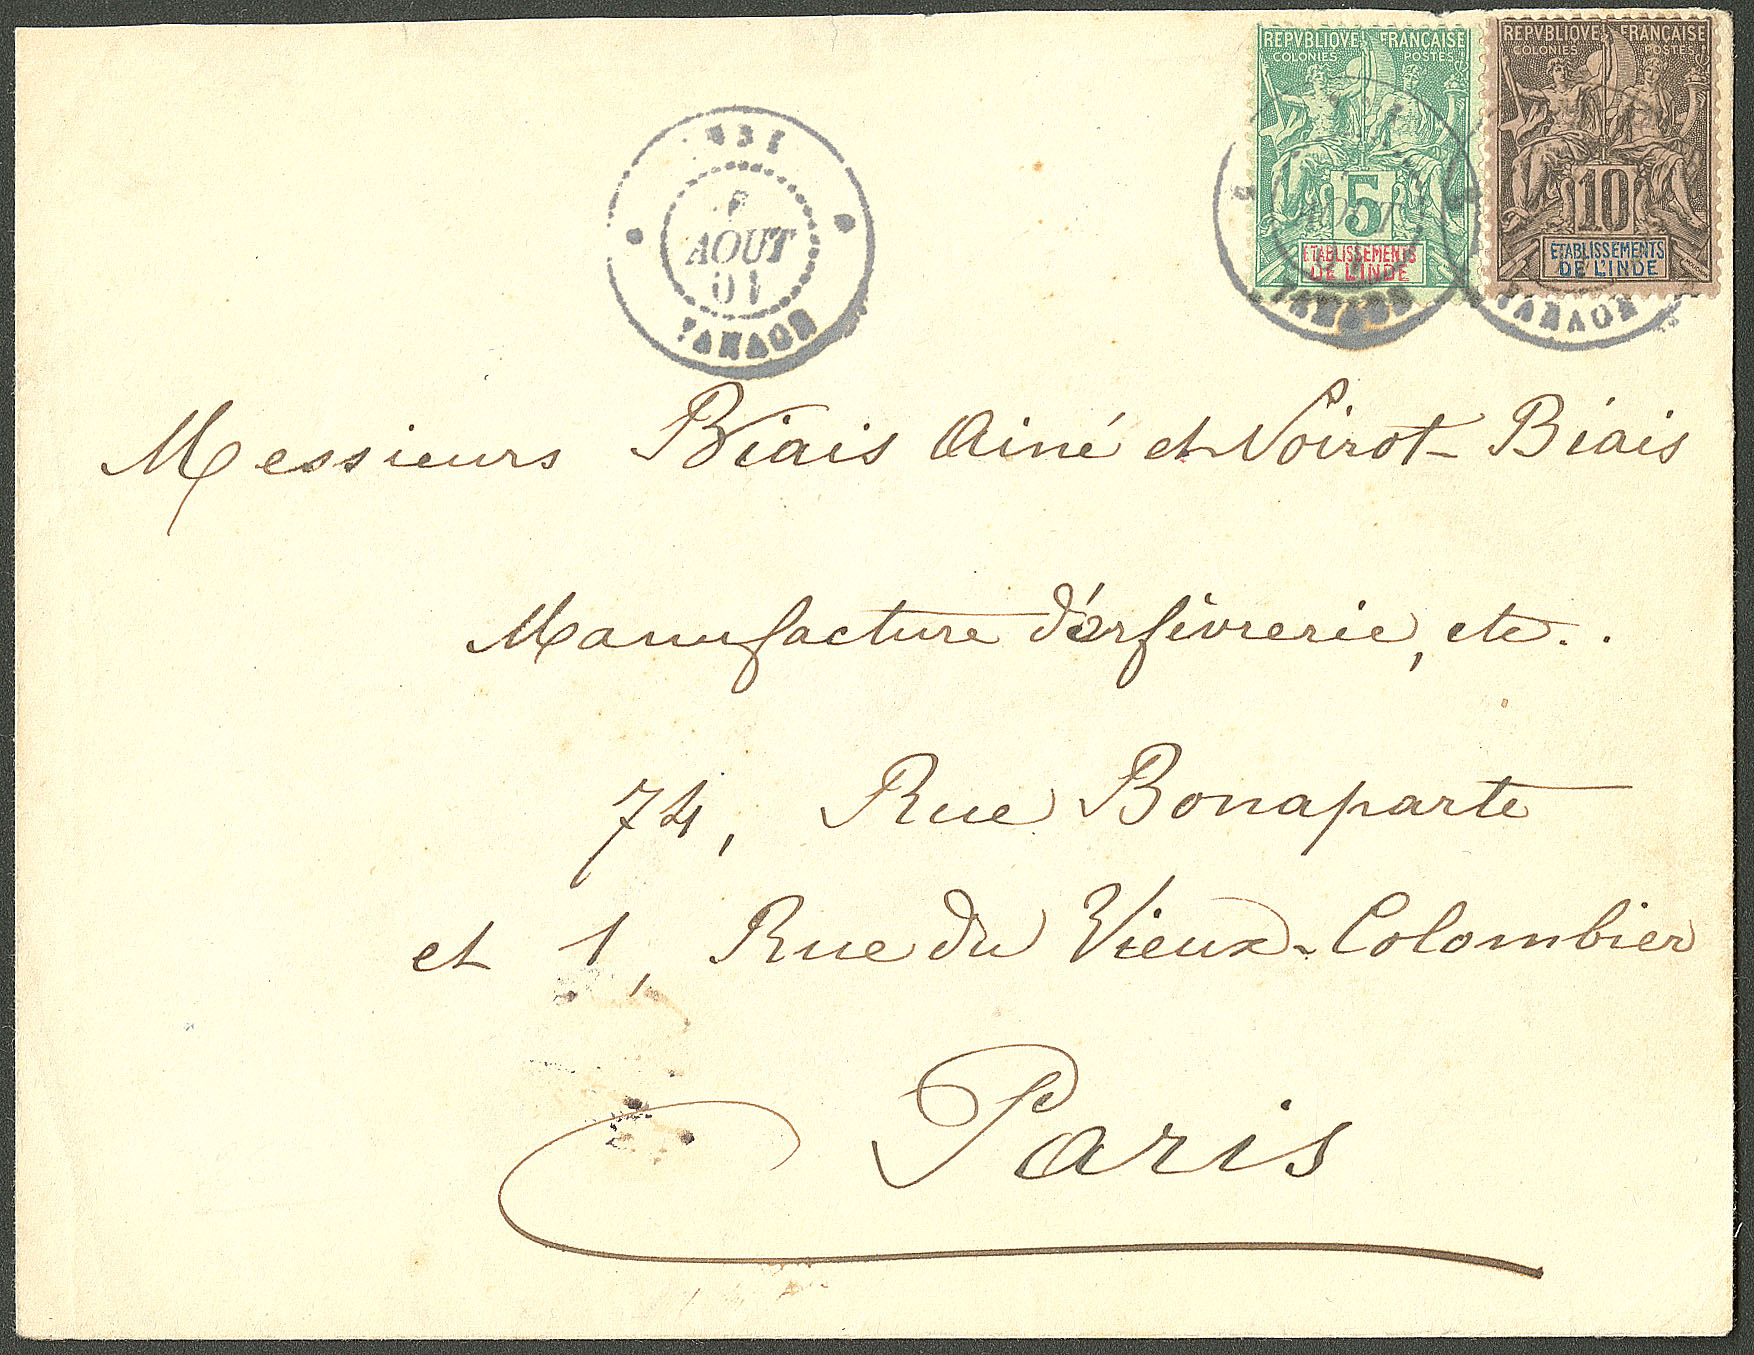 REPVBLIQVE FRANÇAISE
COLONIES POSTES
5
ETABLISSEMENTS
DE L'INDE
REPVBLIQVE FRANÇAISE
COLONIES POSTES
10
ETABLISSEMENTS
DE L'INDE
AOUT
01
YANAON
YANAON
YANAON
Messieurs Biais Ainé et Noirot-Biais
Manufacture d'orfèvrerie, etc..
74, Rue Bonaparte
et 1, Rue du Vieux-Colombier
Paris